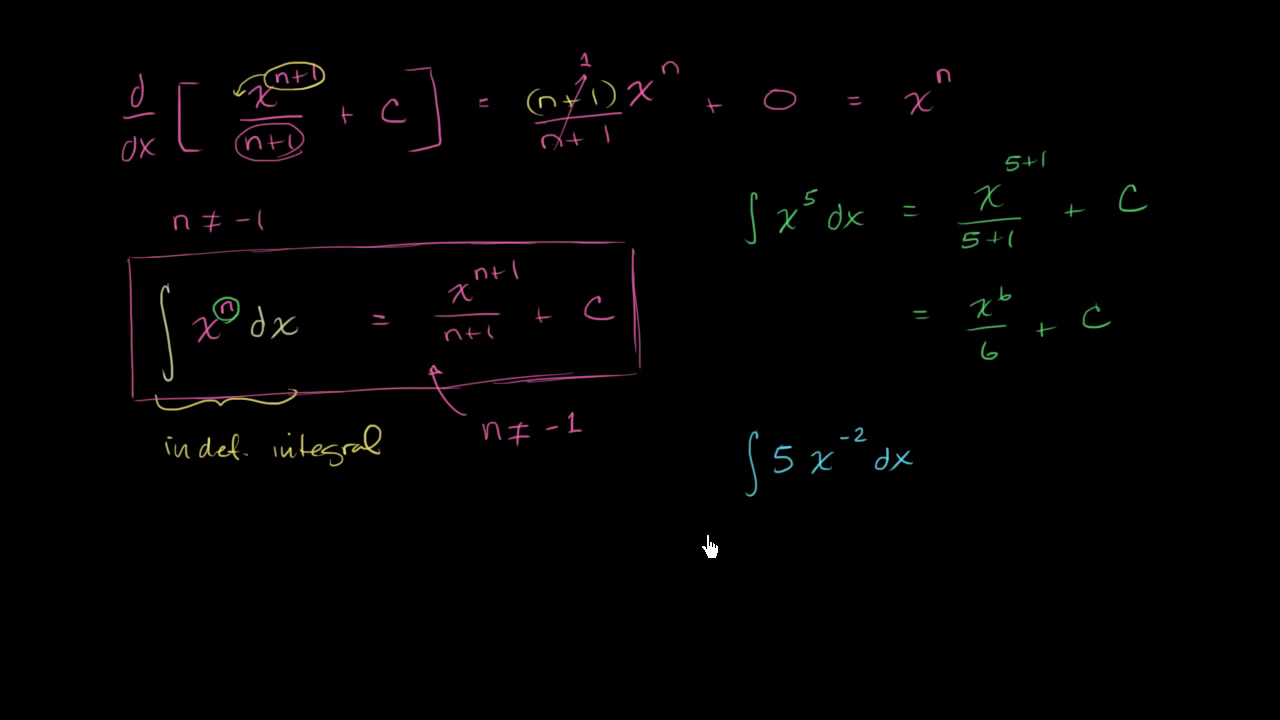 d/dx [ x^(n+1)/(n+1) + C ] = (n+1)x^n/(n+1) 1 + 0 = x^n
n ≠ -1
∫ x^n dx = x^(n+1)/(n+1) + C
n ≠ -1
indef. integral
∫ x^5 dx = x^(5+1)/(5+1) + C
= x^6/6 + C
∫ 5 x^-2 dx